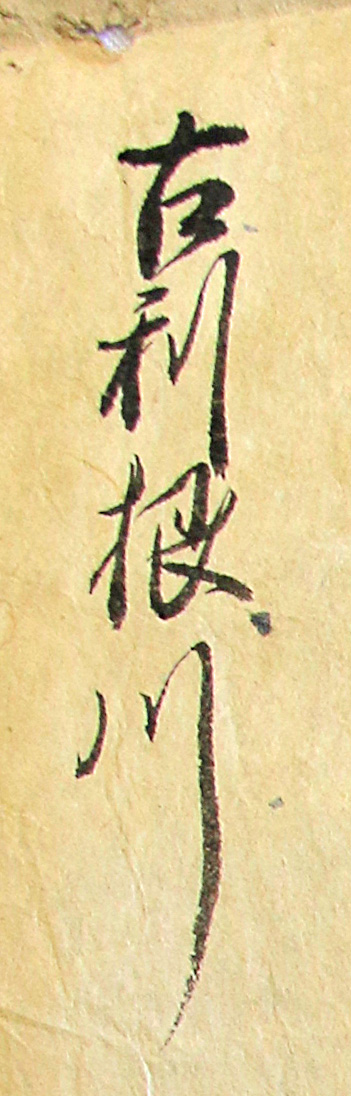 古利根川